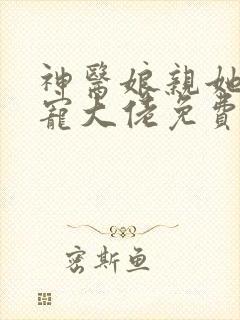 神醫娘親她
寵大佬免費
密斯魚